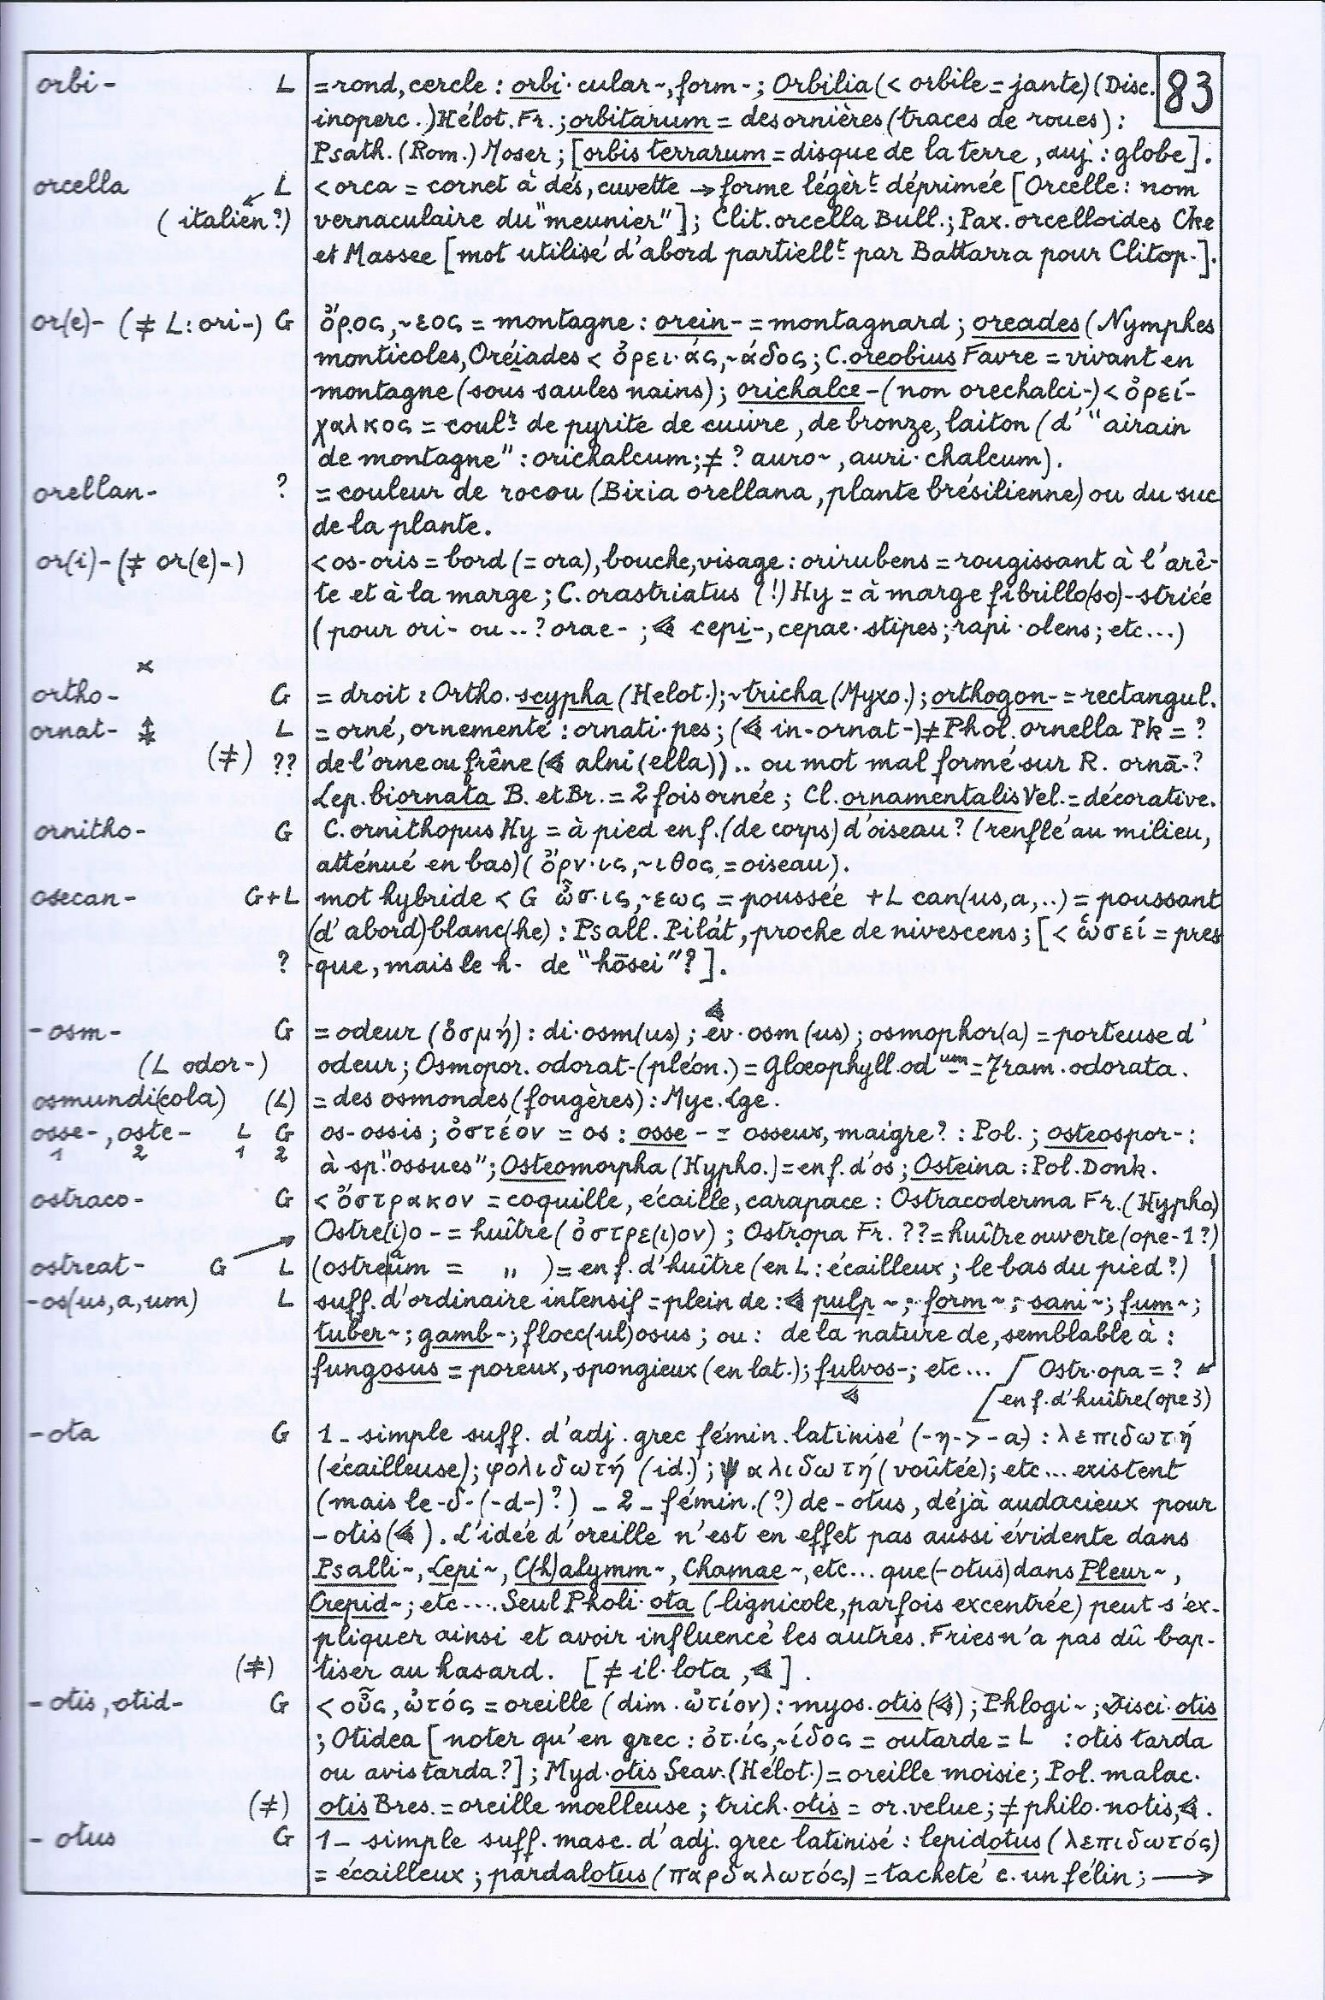 83
orbi- L = rond, cercle : orbi·cular~, form-; Orbilia (< orbile = jante) (Disc.
inoperc.) Hélot. Fr.; orbitarum = des ornières (traces de roues) :
Psath. (Rom.) Moser ; [orbis terrarum = disque de la terre, auj. : globe].
orcella L < orca = cornet à dés, cuvette → forme légèrt déprimée [Orcelle : nom
(italien ?) vernaculaire du "meunier"] ; Clit. orcella Bull.; Pax. orcelloides Cke
et Massee [mot utilisé d'abord partiellt par Battarra pour Clitop.].
or(e)- (≠ L: ori-) G ὄρος, ~εος = montagne : orein- = montagnard ; oreades (Nymphes
monticoles, Oréiades < ὀρει·άς, ~άδος ; C. oreobius Favre = vivant en
montagne (sous saules nains) ; orichalce- (non orechalci-) < ὀρεί-
χαλκος = coulr de pyrite de cuivre, de bronze, laiton (d' "airain
de montagne" : orichalcum; ≠ ? auro~, auri·chalcum).
orellan- ? = couleur de rocou (Bixia orellana, plante brésilienne) ou du suc
de la plante.
or(i)- (≠ or(e)-) < os-oris = bord (= ora), bouche, visage : orirubens = rougissant à l'arê-
te et à la marge ; C. orastriatus (!) Hy = à marge fibrillo(so)-striée
(pour ori- ou ..? orae- ; cepi-, cepae·stipes; rapi·olens; etc...)
ortho- G = droit : Ortho·scypha (Helot.); ~tricha (Myxo.); orthogon- = rectangul.
ornat- L = orné, ornementé : ornati·pes ; ( in-ornat-) ≠ Phol. ornella Pk = ?
(≠) ?? de l'orne ou frêne ( alni(ella)) .. ou mot mal formé sur R. ornā-?
Lep. biornata B. et Br. = 2 fois ornée ; Cl. ornamentalis Vel. = décorative.
ornitho- G C. ornithopus Hy = à pied en f. (de corps) d'oiseau ? (renflé au milieu,
atténué en bas) (ὄρν·ις, ~ιθος = oiseau).
osecan- G+L mot hybride < G ὦσ·ις, ~εως = poussée + L can(us, a, ..) = poussant
(d'abord) blanc(he) : Psall. Pilát, proche de nivescens ; [< ὡσεί = pres
? que, mais le h- de "hōsei" ?].
-osm- G = odeur (ὀσμή) : di·osm(us) ; ev·osm(us); osmophor(a) = porteuse d'
(L odor-) odeur ; Osmopor. odorat- (pléon.) = Glœophyll. odum = Tram. odorata.
osmundi(cola) (L) = des osmondes (fougères) : Myc. Lge.
osse-, oste- L G os-ossis ; ὀστέον = os : osse- = osseux, maigre ? : Pol. ; osteospor- :
1 2 1 2 à sp. "ossues" ; Osteomorpha (Hypho.) = en f. d'os ; Osteina : Pol. Donk.
ostraco- G < ὄστρακον = coquille, écaille, carapace : Ostracoderma Fr. (Hypho)
Ostre(i)o- = huître (ὀστρε(ι)ον) ; Ostropa Fr. ?? = huître ouverte (ope-1 ?)
ostreat- G L (ostreaum = " ) = en f. d'huître (en L : écailleux ; le bas du pied ?)
-os(us, a, um) L suff. d'ordinaire intensif = plein de : pulp~; form~; sani~; fum~;
tuber~; gamb~; flocc(ul)osus ; ou : de la nature de, semblable à :
fungosus = poreux, spongieux (en lat.); fulvos-; etc... Ostr·opa = ?
en f. d'huître (ope 3)
-ota G 1_ simple suff. d'adj. grec fémin. latinisé (-η->-a) : λεπιδωτή
(écailleuse); φολιδωτή (id.); ψαλιδωτή (voûtée); etc... existent
(mais le -δ- (-d-) ?) _ 2_ fémin. (?) de -otus, déjà audacieux pour
-otis ( ). L'idée d'oreille n'est en effet pas aussi évidente dans
Psalli~, Lepi~, C(h)alymm~, Chamae~, etc... que (-otus) dans Pleur~,
Crepid~; etc.... Seul Pholi·ota (-lignicole, parfois excentrée) peut s'ex-
pliquer ainsi et avoir influencé les autres. Fries n'a pas dû bap-
(≠) tiser au hasard. [≠ il·lota, ].
-otis, otid- G < οὖς, ὠτός = oreille (dim. ὠτίον) : myos·otis ( ); Phlogi~ ; Disci·otis
; Otidea [noter qu'en grec : ὀτ·ίς, ~ίδος = outarde = L : otis tarda
ou avis tarda ?] ; Myd·otis Seav. (Hélot.) = oreille moisie ; Pol. malac·
(≠) otis Bres. = oreille mœlleuse ; trich·otis = or. velue ; ≠ philo·notis, .
-otus G 1_ simple suff. masc. d'adj. grec latinisé : lepidotus (λεπιδωτός)
= écailleux ; pardalotus (παρδαλωτός) = tacheté c. un félin ; →